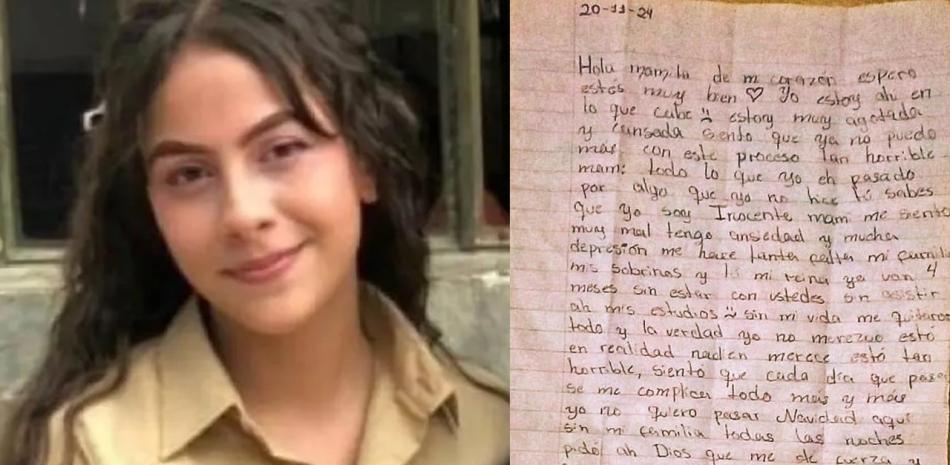 20-11-24
Hola mamita de mi corazón espero
estés muy bien ♡ Yo estoy ahí en
lo que cabe estoy muy agotada
y cansada siento que ya no puedo
más con este proceso tan horrible
mami todo lo que yo eh pasado
por algo que yo no hice tú sabes
que yo soy Inocente mami me siento
muy mal tengo ansiedad y mucha
depresión me hace tanta falta mi famili
mis sobrinas y tú mi reina ya van 4
meses sin estar con ustedes sin asistir
ah mis estudios sin mi vida me quitaron
todo y la verdad yo no merezco estó
en realidad nadien merece estó tan
horrible, siento que cada día que pasa
se me complica todo más y más
yo no quiero pasar Navidad aquí
sin mi familia todas las noches
pidó ah Dios que me de fuerza y